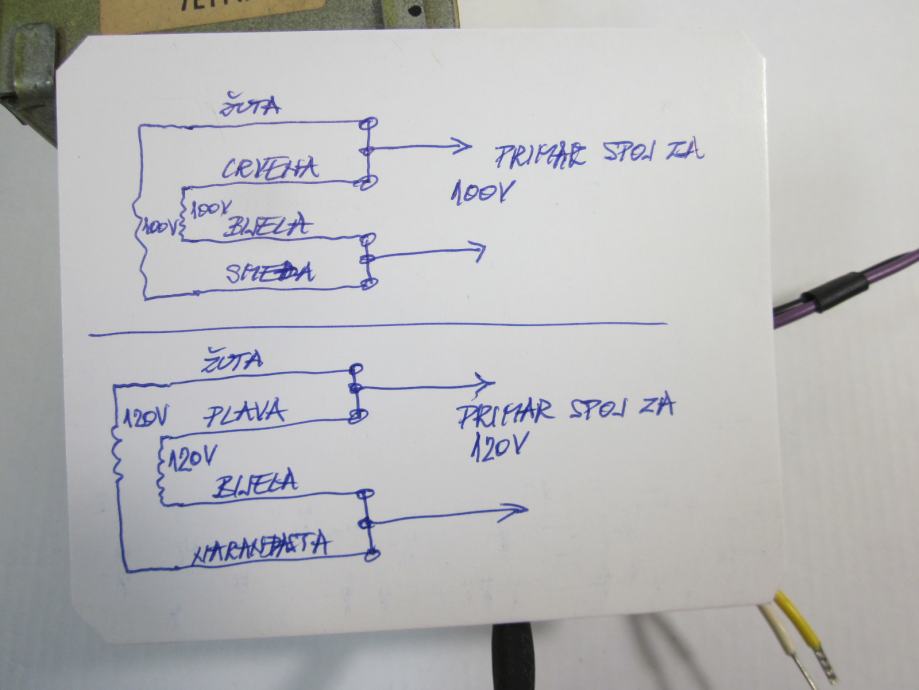 ŽUTA
CRVENA
100V
100V
BIJELA
SMEĐA
PRIMAR SPOJ ZA
100V
ŽUTA
120V
PLAVA
120V
BIJELA
NARANĐASTA
PRIMAR SPOJ ZA
120V